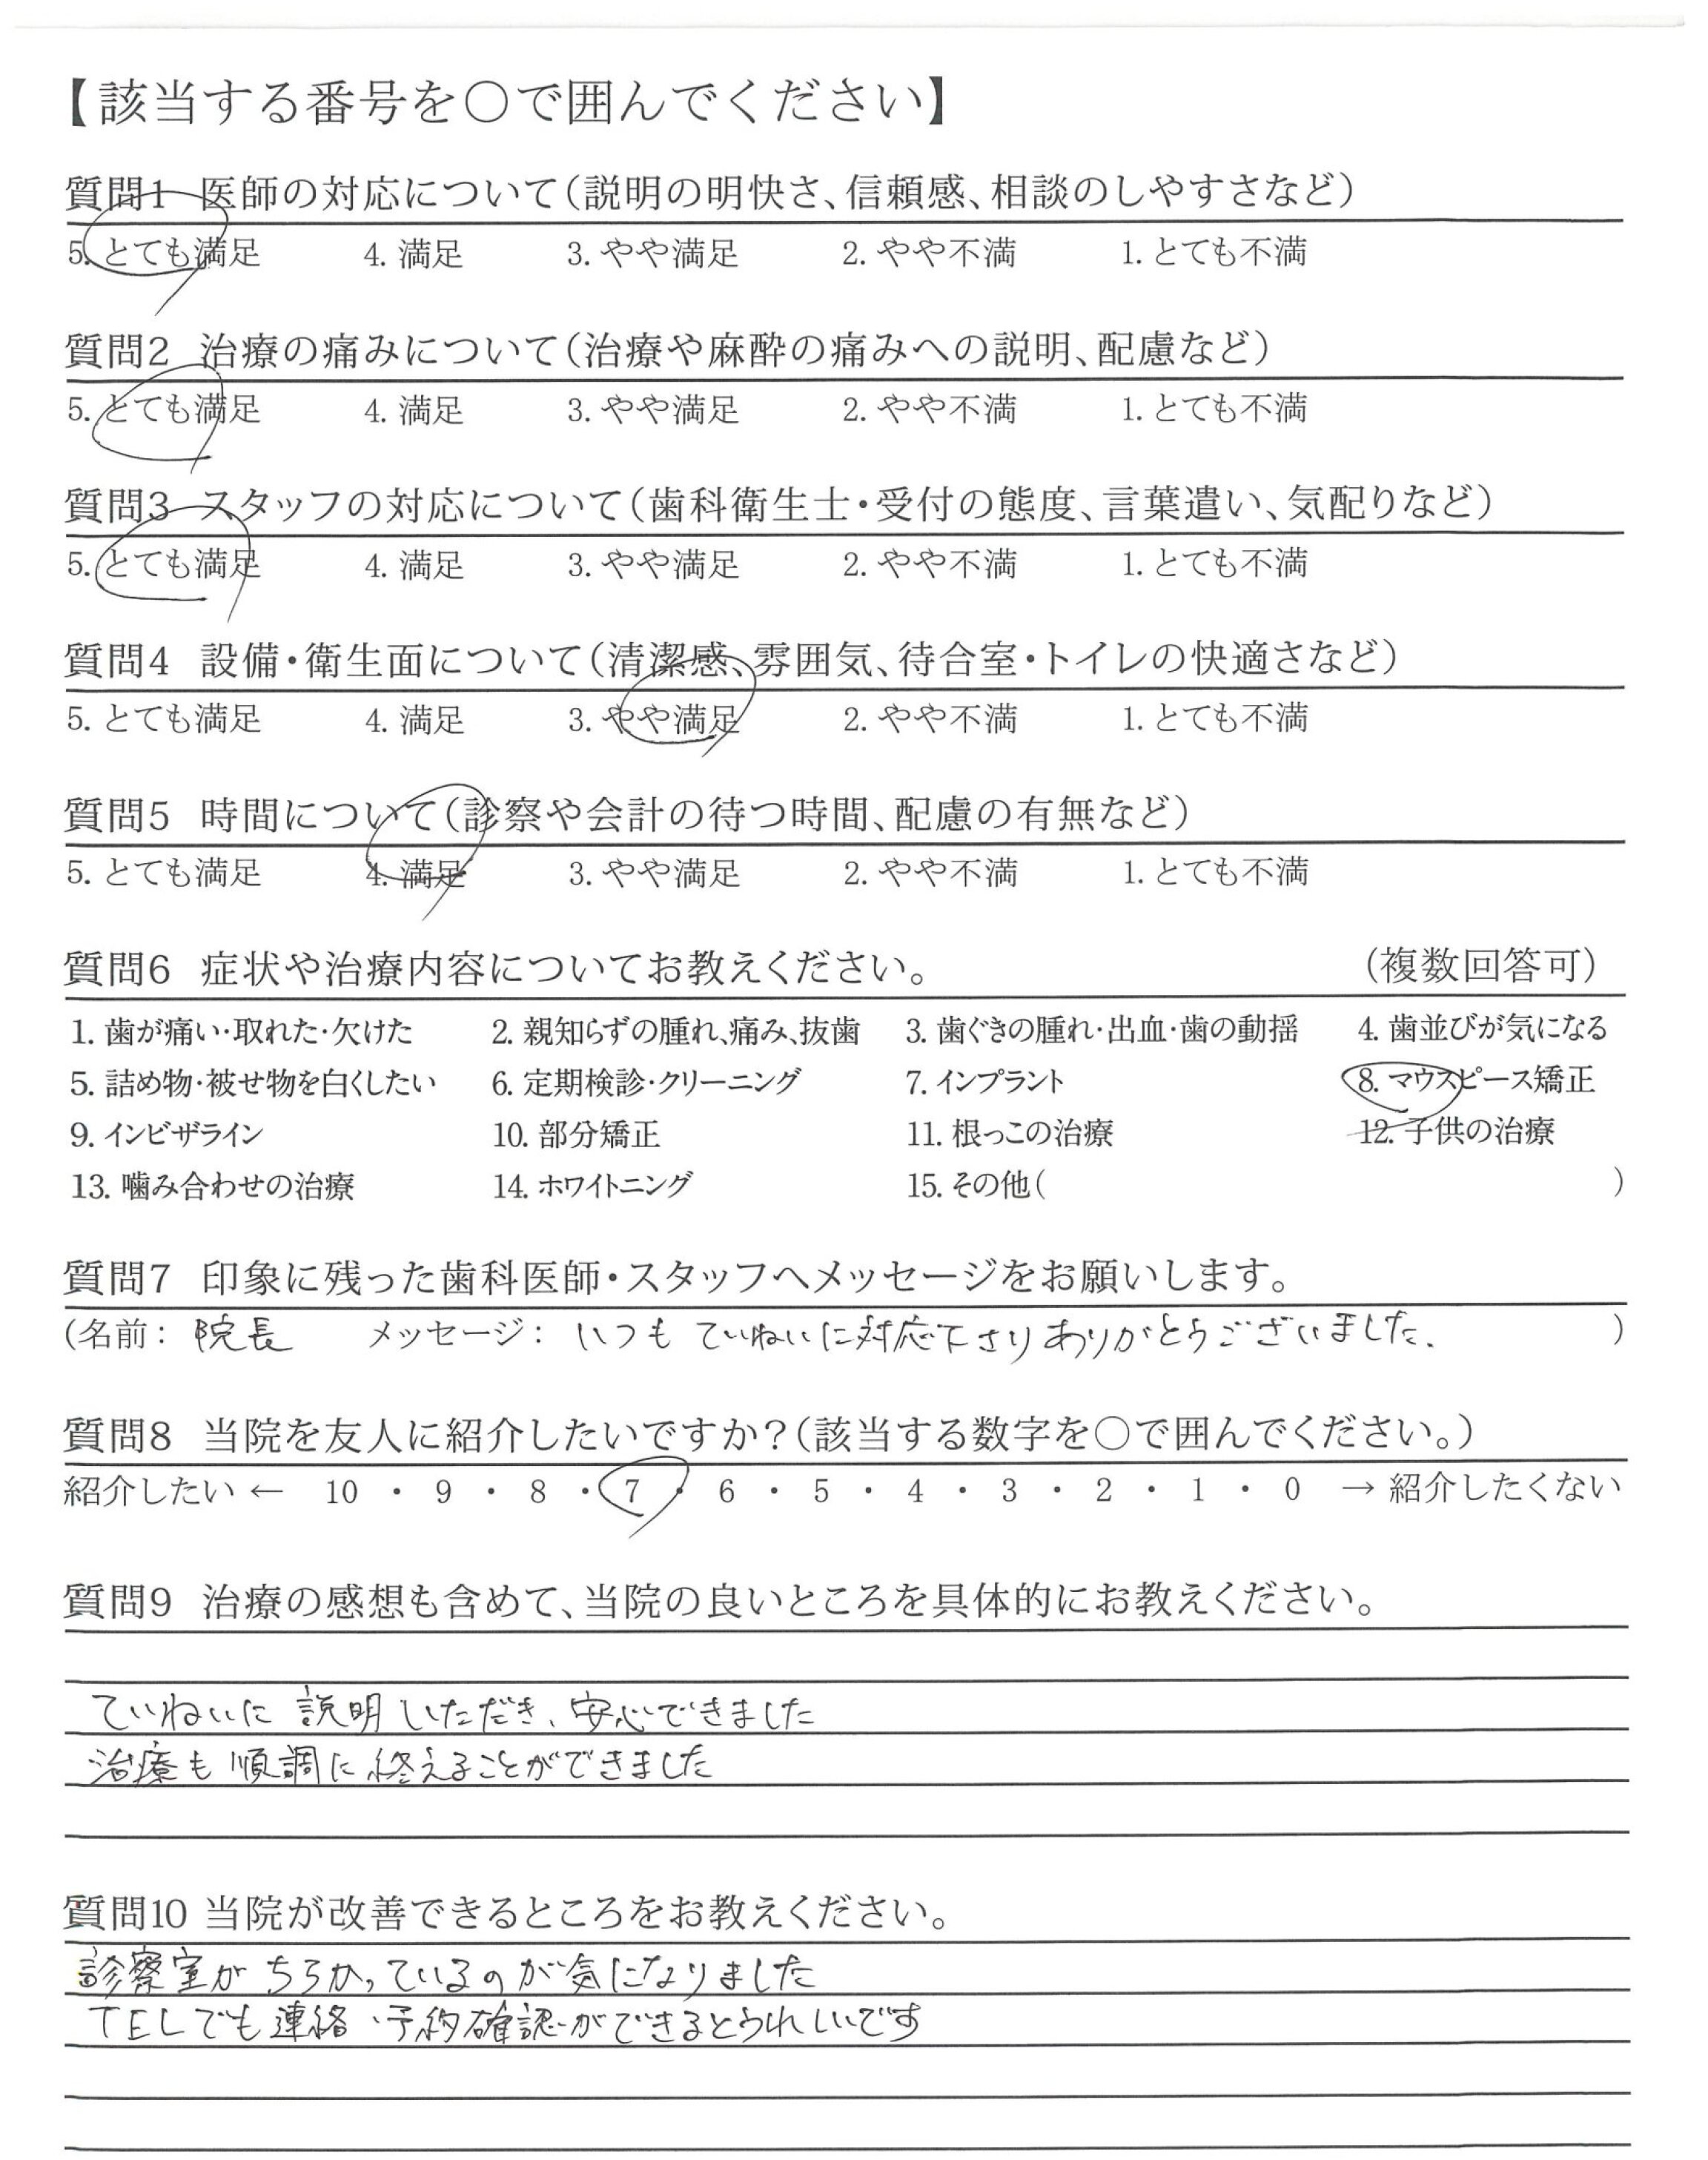 【該当する番号を○で囲んでください】
質問1 医師の対応について(説明の明快さ、信頼感、相談のしやすさなど)
5. とても満足 4. 満足 3. やや満足 2. やや不満 1. とても不満
質問2 治療の痛みについて(治療や麻酔の痛みへの説明、配慮など)
5. とても満足 4. 満足 3. やや満足 2. やや不満 1. とても不満
質問3 スタッフの対応について(歯科衛生士・受付の態度、言葉遣い、気配りなど)
5. とても満足 4. 満足 3. やや満足 2. やや不満 1. とても不満
質問4 設備・衛生面について(清潔感、雰囲気、待合室・トイレの快適さなど)
5. とても満足 4. 満足 3. やや満足 2. やや不満 1. とても不満
質問5 時間について(診察や会計の待つ時間、配慮の有無など)
5. とても満足 4. 満足 3. やや満足 2. やや不満 1. とても不満
質問6 症状や治療内容についてお教えください。 (複数回答可)
1. 歯が痛い・取れた・欠けた 2. 親知らずの腫れ、痛み、抜歯 3. 歯ぐきの腫れ・出血・歯の動揺 4. 歯並びが気になる
5. 詰め物・被せ物を白くしたい 6. 定期検診・クリーニング 7. インプラント 8. マウスピース矯正
9. インビザライン 10. 部分矯正 11. 根っこの治療 12. 子供の治療
13. 噛み合わせの治療 14. ホワイトニング 15. その他( )
質問7 印象に残った歯科医師・スタッフへメッセージをお願いします。
(名前: 院長 メッセージ: いつも ていねいに対応下さりありがとうございました. )
質問8 当院を友人に紹介したいですか?(該当する数字を○で囲んでください。)
紹介したい ← 10 ・ 9 ・ 8 ・ 7 ・ 6 ・ 5 ・ 4 ・ 3 ・ 2 ・ 1 ・ 0 → 紹介したくない
質問9 治療の感想も含めて、当院の良いところを具体的にお教えください。
ていねいに 説明 いただき、安心できました
治療も 順調に 終えることができました
質問10 当院が改善できるところをお教えください。
診察室が ちらかっているのが気になりました
TELでも連絡・予約確認ができるとうれしいです